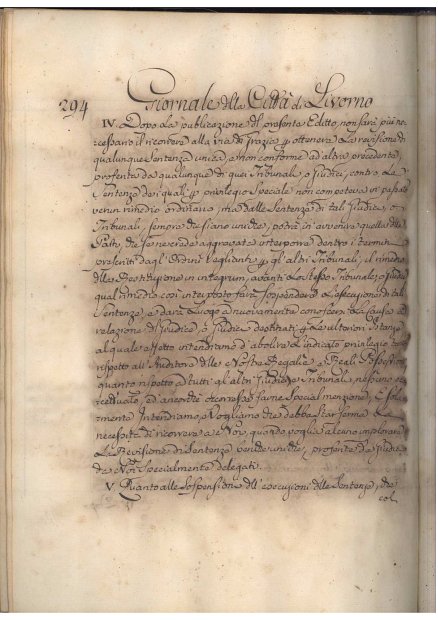 294 Giornale della Città di Livorno
IV. Dopo la publicazione del presente Editto, non sarà più ne-
cessario il ricorrere alla via di Grazia p ottenere la revisione di
qualunque Sentenza unica, e non conforme ad altra precedente,
proferta da qualunque di quei Tribunali, o Giudici, contro le
Sentenze dei quali p privilegio speciale non competeva in passato
verun rimedio ordinario, ma dalle Sentenze di tali Giudici, o
Tribunali, sempre che siano uniche, potrà in avvenire quella delle
Parti, che se ne crederà aggravata interporre dentro i termini
prescritti dagl'Ordini Veglianti p gl'altri Tribunali, il rimedio
della Restituzione in integrum, avanti lo stesso Tribunale, o Giudice
qual rimedio così interposto farà sospendere l'esecuzione di tal
Sentenza, e darà luogo a nuovamente conoscere la Causa a
relazione di Giudice, o Giudici destinati p le ulteriori Istanze
al quale effetto intendiamo d'abolire l'indicato privilegio tanto
rispetto all'Auditore delle Nostre Regalie, e Reali Possessioni
quanto rispetto a tutti gl'altri Giudici, o Tribunali, nessuno ec-
cettuato, ed ancorchè occorresse farne special menzione, e sola-
mente Intendiamo, e Vogliamo che debba star ferma la
necessità di ricorrere a Noi, quando voglia alcuno implorare
la Revisione di Sentenze benchè uniche, proferte da Giudici
da Noi specialmente delegati.
V. Quanto alle sospensioni dell'esecuzioni delle Sentenze, che
col